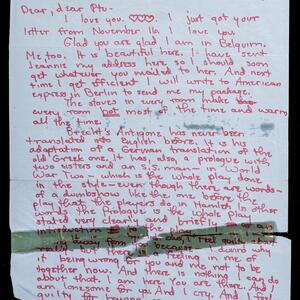 Dear, dear Ptu-
I love you. ♡♡♡♡ I just got your
letter from November 16. I love you.
Glad you are glad I am in Belguim.
Me, too. It is beautiful here. I have sent
Jeannie my address here so I should soon
get whatever you mailed to her. And next
time I get efficient I will write to American
express in Berlin to send me my package.
The stoves in every room make
every room hot most of the time and warm
all the time.
Brecht's Antigone has never been
translated into English before. It is his
adaptation of a German translation of the
old Greek one. It has, also, a prologue with
two sisters and an S.S. man - in World
War Two - which is the whole play done
in this style - even though there are words -
of a dumbshow like the one before the
play that the players do, in Hamlet. In other
words the Prologue is the whole play
stated very clearly and briefly
feel quite
because I
it being wrong for you and me not to be
together now. And there is nothing I can do
about that. I am here. You are there. And
am one for you. And I cry. And I feel
guilty for